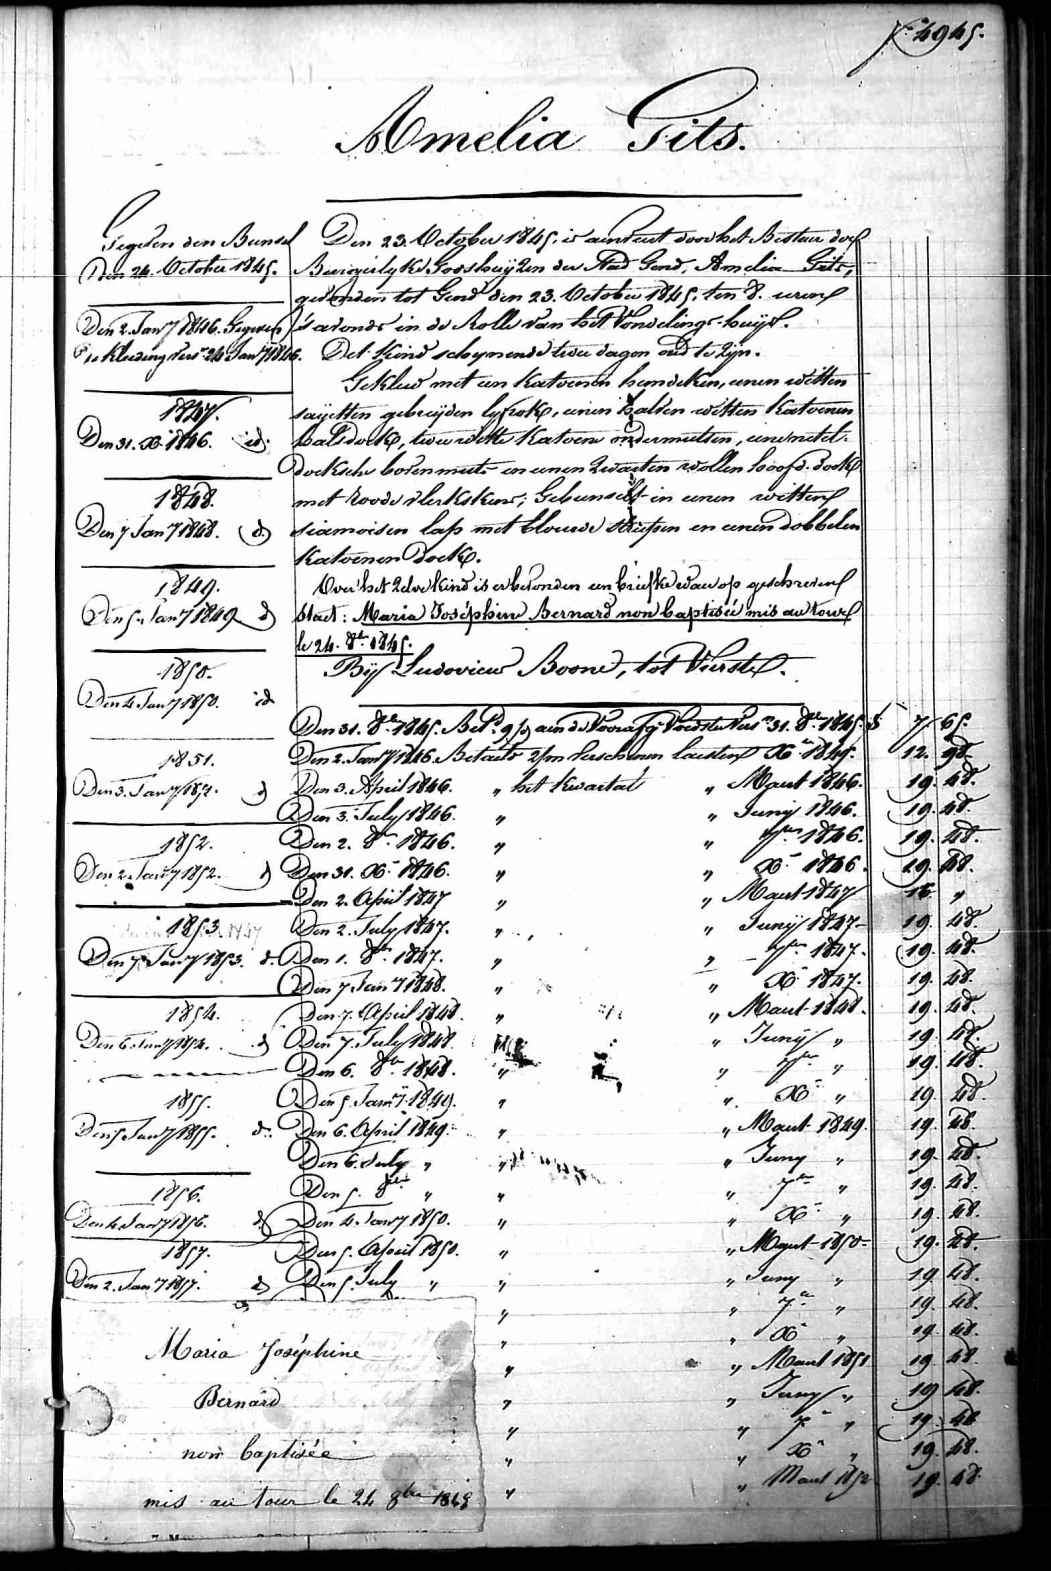 N° 4945.
Amelia Gits.
Gegeven den Bunsel
Den 24. October 1845.
Den 2. Jany 1846. Gegeven
de Kleeding vers 24 Jany 1846.
1847.
Den 31. Xr 1846. id.
1848.
Den 7 Jany 1848. d.
1849.
Den 5. Jany 1849 d
1850.
Den 4 Jany 1850. id
1851.
Den 3. Jany 1851. d
1852.
Den 2 Jany 1852. d
1853.
Den 7 Jany 1853. d.
1854.
Den 6 Jany 1854. d
1855.
Den 5 Jany 1855. d.
1856.
Den 4 Jany 1856. d
1857.
Den 2. Jany 1857. d
Den 23. October 1845, is aenveert door het Bestuer der
Burgerlyke Godshuyzen der Stad Gend, Amelia Gits,
gevonden tot Gend den 23. October 1845, ten 8. uren
's avonds in de Rolle van het Vondelings-huys.
Det Kind schynende twee dagen oud te zyn.
Gekleed met een katoenen hemdeken, eenen witten
sayetten gebreyden lyfrok, eenen halven witten katoenen
halsdoek, twee witte katoene ondermutsen, eene netel-
doeksche bovenmuts en eenen zwarten wollen hoofd-doek
met roode vlerkskens; Gebunseld in eenen witten
siamoisen lap met blauwe striepen en eenen dobbelen
katoenen doek.
Over het zelve kind is er bevonden een briefke waer op geschreven
staet: Maria Joséphine Bernard non baptisée mis au tour
le 24. 8br 1845.
By Ludovicus Boone, tot Vierstel.
Den 31. 8br 1845. Bet. 9/d aen de Voorafg. Voedster vers 31. 8br 1845. f 7 65.
Den 2. Jany 1846. Betaelt 2/m verschenen laesten Xr 1845. 12. 98.
Den 3. April 1846. " het kwartael " Maert 1846. 19. 48.
Den 3. July 1846. " " Juny 1846. 19. 48.
Den 2. 8br 1846. " " 7br 1846. 19. 48.
Den 31. Xr 1846. " " Xr 1846. 19. 48.
Den 2. April 1847 " " Maert 1847 16. "
Den 2. July 1847. " " Juny 1847. 19. 48.
Den 1. 8br 1847. " " 7br 1847. 19. 48.
Den 7 Jany 1848. " " Xr 1847. 19. 48.
Den 7. April 1848. " " Maert 1848. 19. 48.
Den 7. July 1848. " " Juny " 19. 48.
Den 6. 8br 1848. " " 7br " 19. 48.
Den 5. Jany 1849. " " Xr " 19. 48.
Den 6. April 1849. " " Maert 1849. 19. 48.
Den 6. July " " " Juny " 19. 48.
Den 5. 8br " " " 7br " 19. 48.
Den 4. Jany 1850. " " Xr " 19. 48.
Den 5. April 1850. " " Maert 1850. 19. 48.
Den 5. July " " " Juny " 19. 48.
" " 7br " 19. 48.
" " Xr " 19. 48.
" " Maert 1851 19 48.
" " Juny " 19 48.
" " 7br " 19. 48
" " Xr " 19. 48.
" " Maert 1852 19. 48
Maria Joséphine
Bernard
non baptisée
mis au tour le 24 8bre 1845